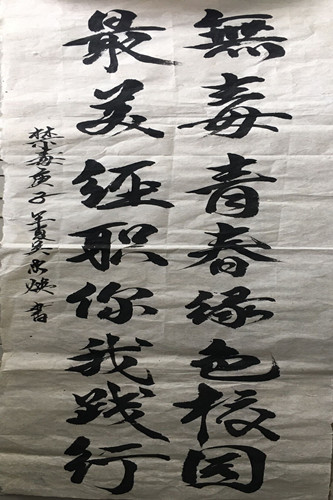 無毒青春绿色校园
最美征职你我践行
禁毒庚子年夏吴忠焕书